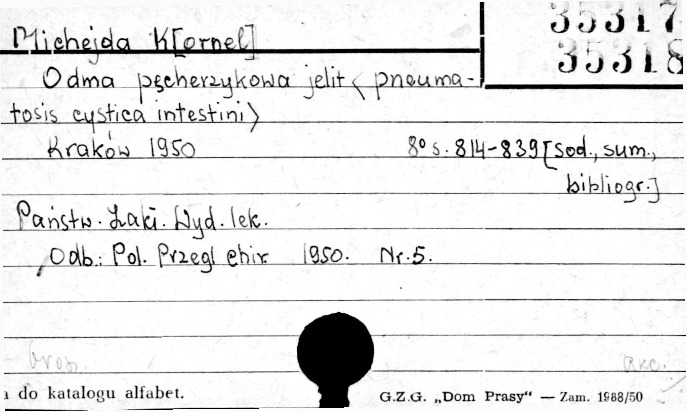 35317
35318
Michejda K[ornel]
Odma pęcherzykowa jelit <pneuma-
tosis cystica intestini>
Kraków 1950 8° s. 814-839 [sod., sum.,
bibliogr.]
Państw. Zakł. Wyd. lek.
Odb.: Pol. Przegl chir 1950. Nr. 5.
Brosz. akc.
do katalogu alfabet. G.Z.G. „Dom Prasy" — Zam. 1988/50